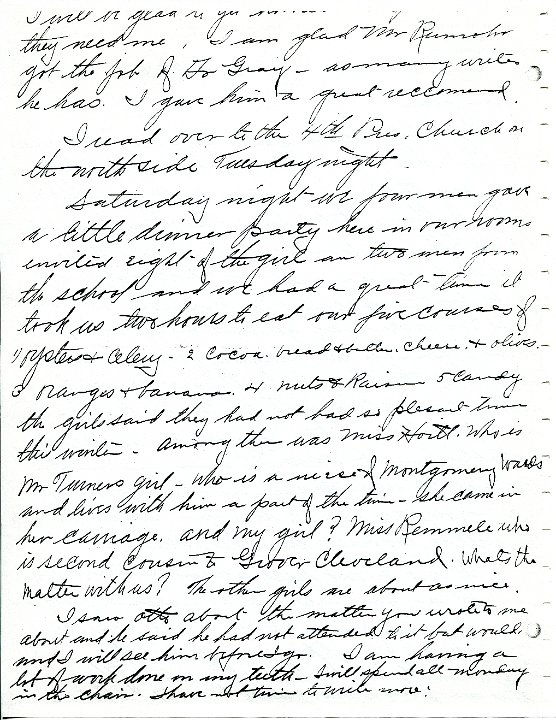 I will be glad
they need me. I am glad Mr
got the job of Gray - as many writes
he has. I gave him a great reccomend.
I read over to the 4th Pres. Church on
the north side Tuesday night.
Saturday night we four men gave
a little dinner party here in our rooms
invited eight of the girls an two men from
the school and we had a great time it
took us two hours to eat our five courses of
1) oysters + Celery - 2 cocoa. bread + butter. cheese. + olives -
3 oranges + bananas. 4 nuts & Raisins 5 candy
the girls said they had not had so plesant time
this winter - among them was Miss who is
Mr Turners girl - who is a niece of Montgomery Wards
and lives with him a part of the time - she came in
her carriage. and my girl? Miss Remmele who
is second cousin to Grover Cleveland. Whats the
matter with us? The other girls are about as nice.
I saw about the matter you wrote to me
about and he said he had not attended to it but would
and I will see him before I go. I am having a
lot of work done on my teeth - I will spend all monday
in the chair. I have not time to write more.